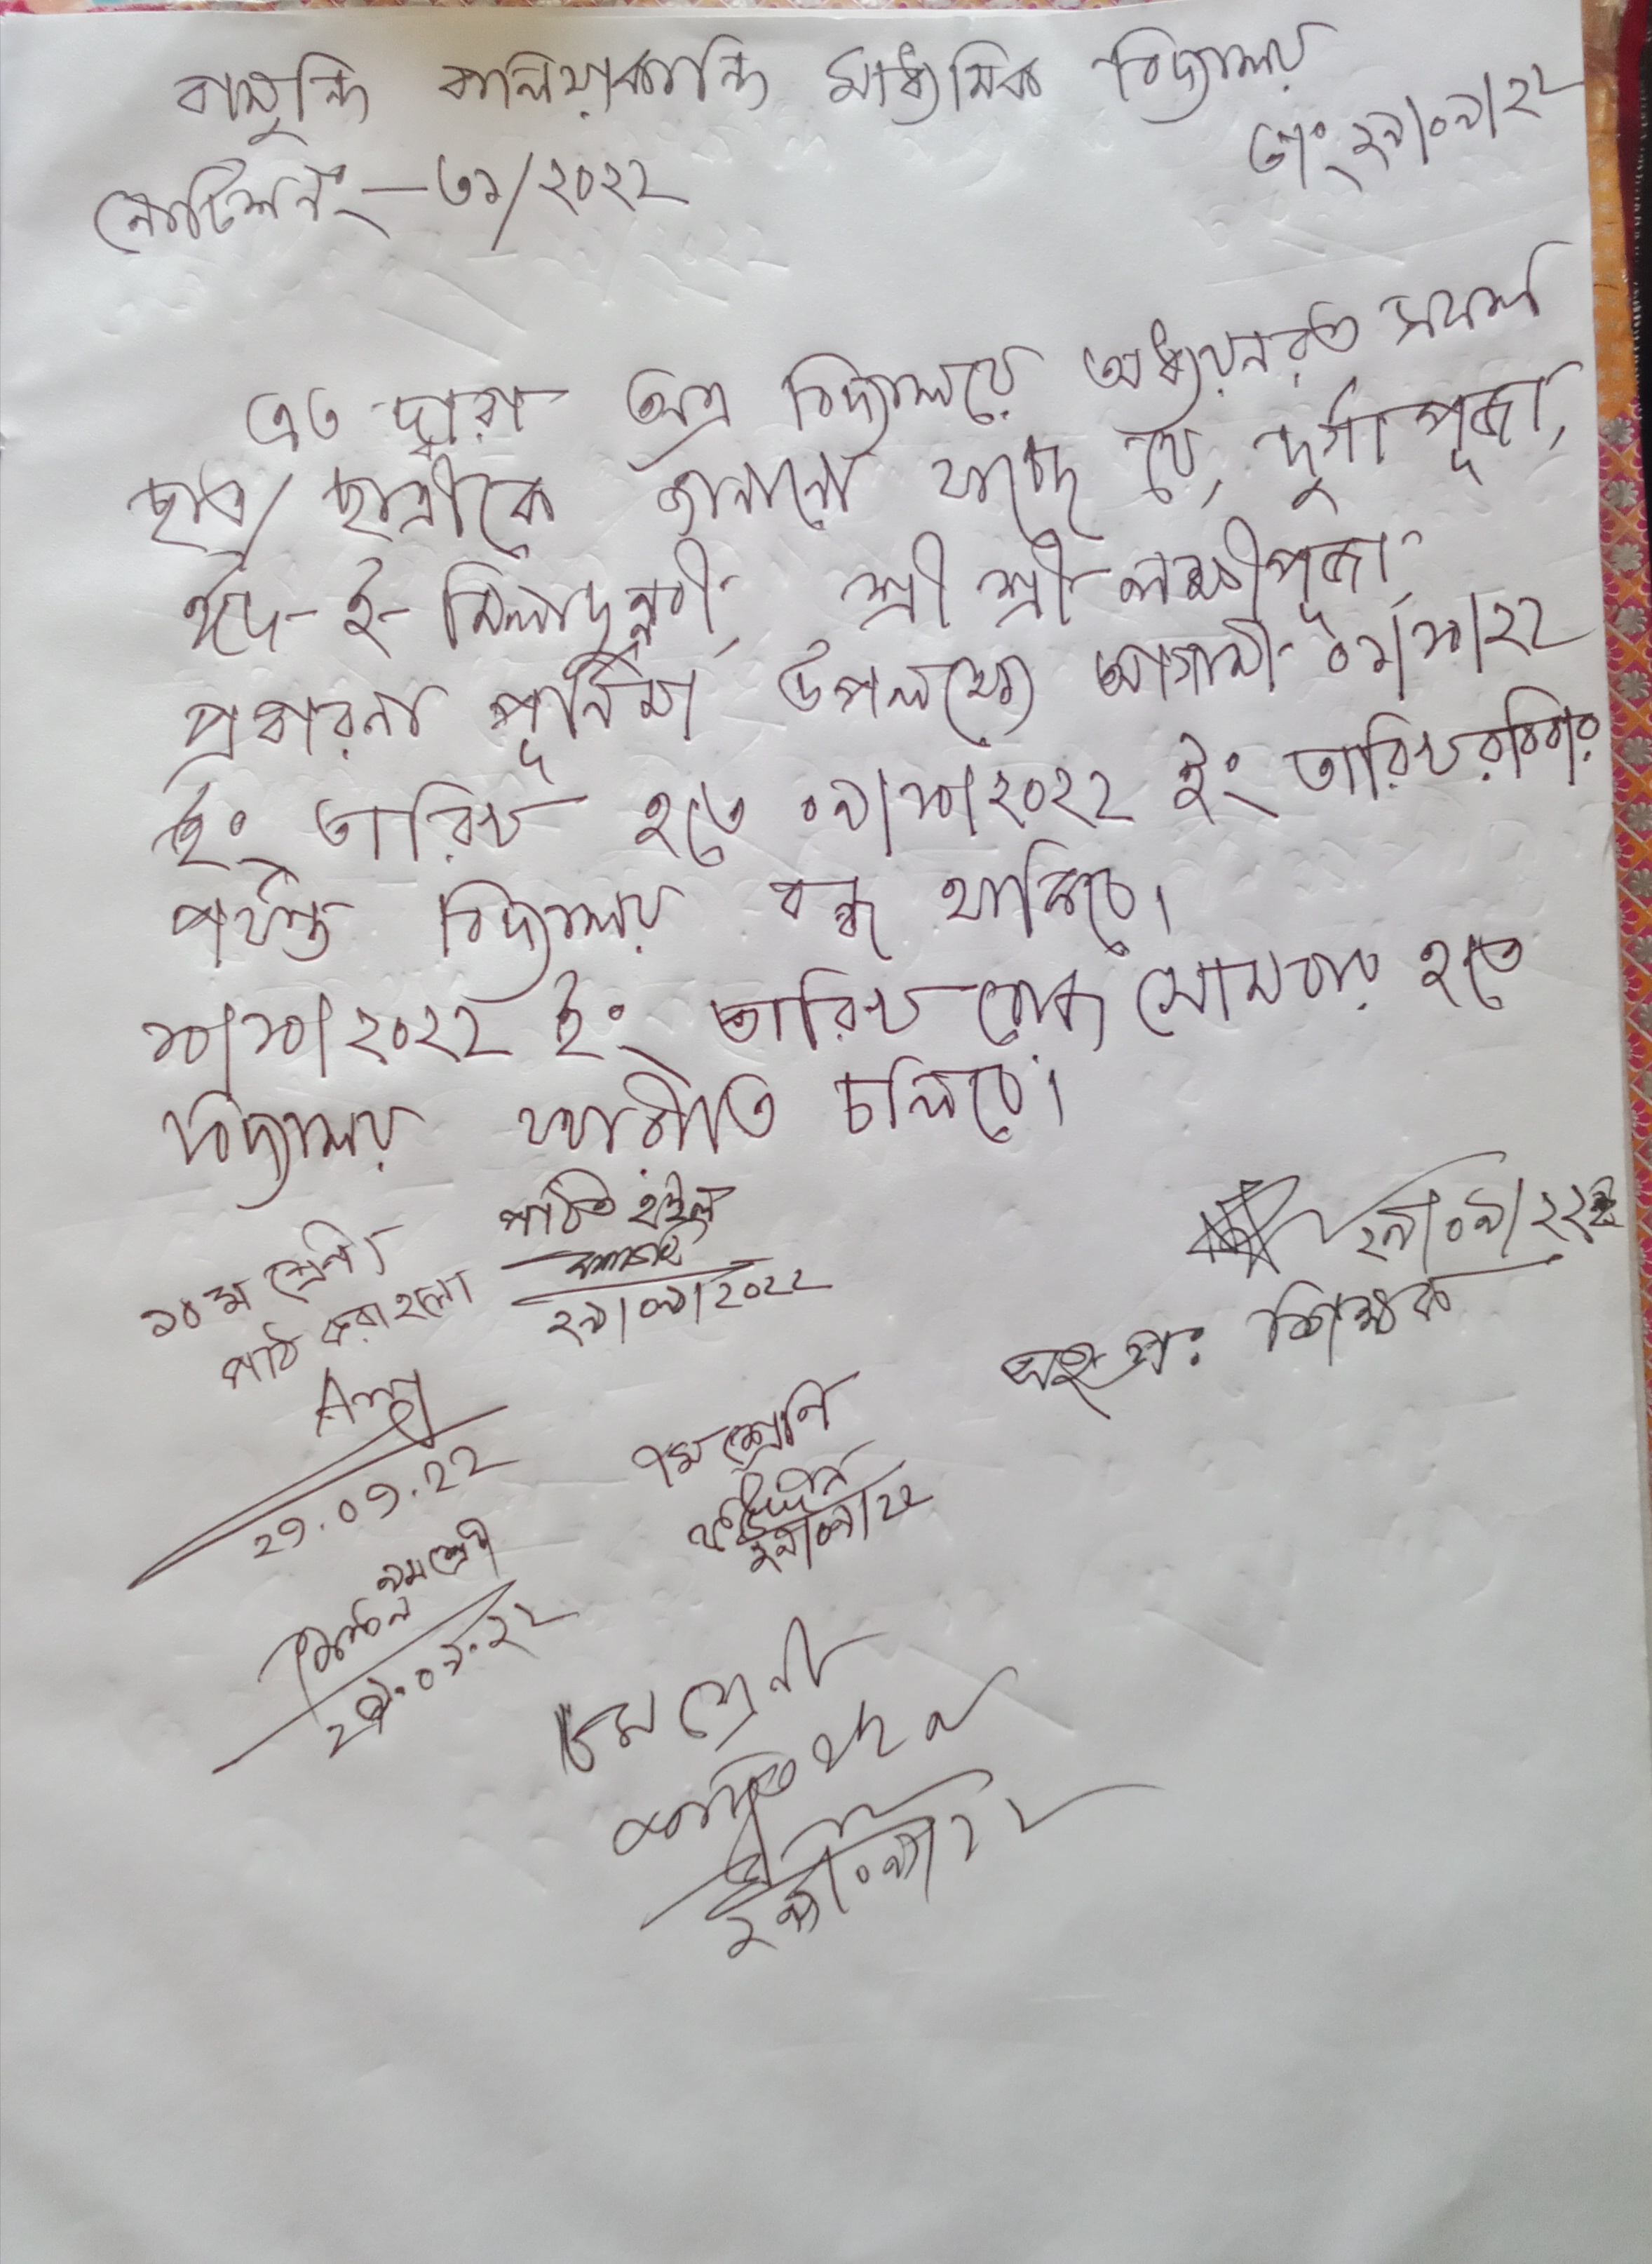 বালুন্দি কালিয়াকান্দি মাধ্যমিক বিদ্যালয়
তাং ২৯/০৯/২২
নোটিশ নং - ৩১/২০২২
এত দ্বারা অত্র বিদ্যালয়ে অধ্যয়নরত সকল
ছাত্র/ ছাত্রীকে জানানো যাচ্ছে যে, দুর্গা পূজা,
ঈদ-ই-মিলাদুন্নবী, শ্রী শ্রী লক্ষ্মীপূজা,
প্রবারনা পূর্নিমা উপলক্ষ্যে আগামী ০১/১০/২২
ইং তারিখ হতে ০৯/১০/২০২২ ইং তারিখ রবিবার
পর্যন্ত বিদ্যালয় বন্ধ থাকিবে।
১০/১০/২০২২ ইং তারিখ রোজ সোমবার হতে
বিদ্যালয় যথারীতি চলিবে।
পঠিত হইল
২৯/০৯/2022
১০ম শ্রেণি
পাঠ করা হলো
29.09.22
২৯/০৯/২২
সহ প্রঃ শিক্ষক
৭ম শ্রেণি
২৯/০৯/২২
৯ম শ্রেণী
২৯.০৯.২২
৮ম শ্রেণী
২৯/০৯/২২